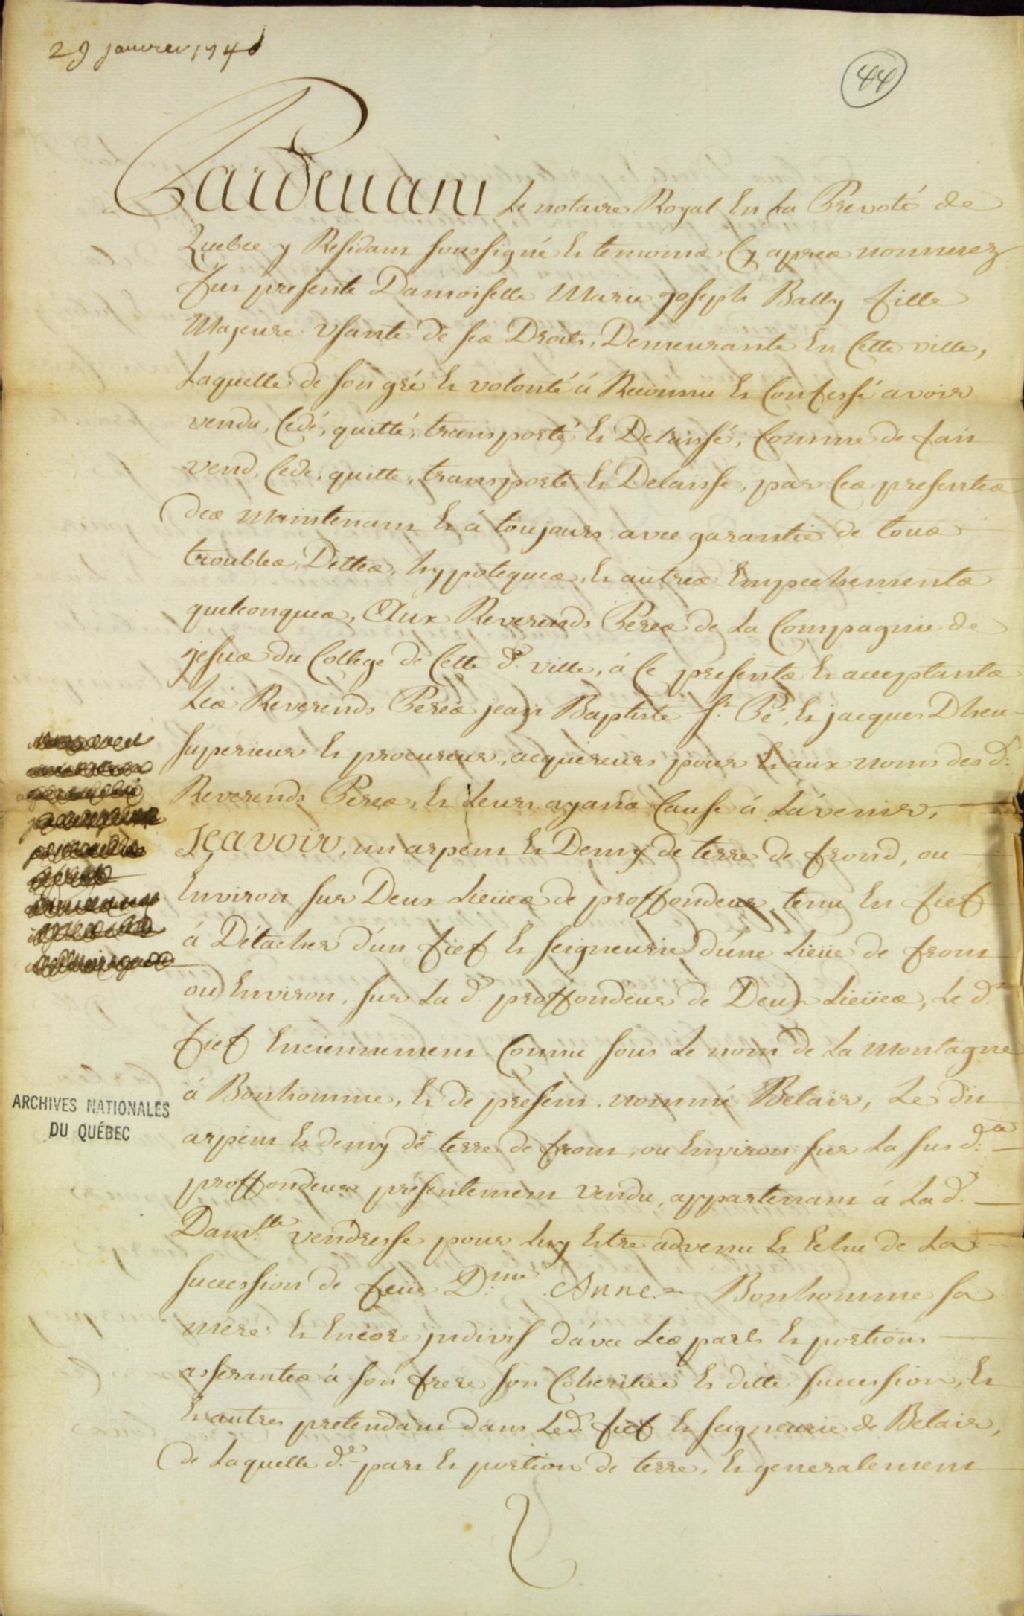 29 janvier 1748
44
Pardevant Le notaire Royal En La Prevoté de
Quebec y Residant soussigné Et temoins Cy apres nommez
fut presente Damoiselle Marie Joseph Bally fille
Majeure usante de ses Droits, Demeurante En Cette ville,
Laquelle de son gré Et volonté à Reconnu Et Confessé avoir
vendu, Cedé, quitté, transporté Et Delaissé, Comme de fait
vend, Cede, quitte, transporte Et Delaisse, par Ces presentes
des Maintenant Et à toujours avec garantie de tous
troubles, Dettes, hypoteques, Et autres Empechements
quelconques, Aux Reverends Peres de La Compagnie de
Jesus du College de Cette d. ville, à Ce presents Et acceptants
Les Reverends Peres jean Baptiste St. Pé, Et jacques Dheu
superieur Et procureur, acquereurs pour Et aux noms desd.
Reverends Peres, Et Leurs ayans Cause à L'avenir,
Sçavoir, un arpent Et Demy de terre de frond, ou
Environ sur Deux Lieües de proffondeur, tenu En fief
à Détacher d'un fief Et seigneurie d'une Lieüe de front
ou Environ, sur La d. proffondeur de Deux Lieües, Le d.
fief Enciennement Connu sous Le nom de La Montagne
à Bonhomme, Et de present nommé Belair, Le dit
arpent Et demy de terre de front, ou Environ sur La sus d.
proffondeur presentement vendu, appartenant à Lad.
Dam.lle vendresse pour Luy Estre advenu Et Echu de La
succession de feüe D.me Anne Bonhomme sa
mere Et Encore jndivis d'avec Les parts Et portions
afferantes à son frere son Coheritier En ditte succession, Et
Et autres pretendant dans Led. fief Et seigneurie de Belair,
De Laquelle d. part Et portion de terre, Et generalement
ARCHIVES NATIONALES
DU QUÉBEC